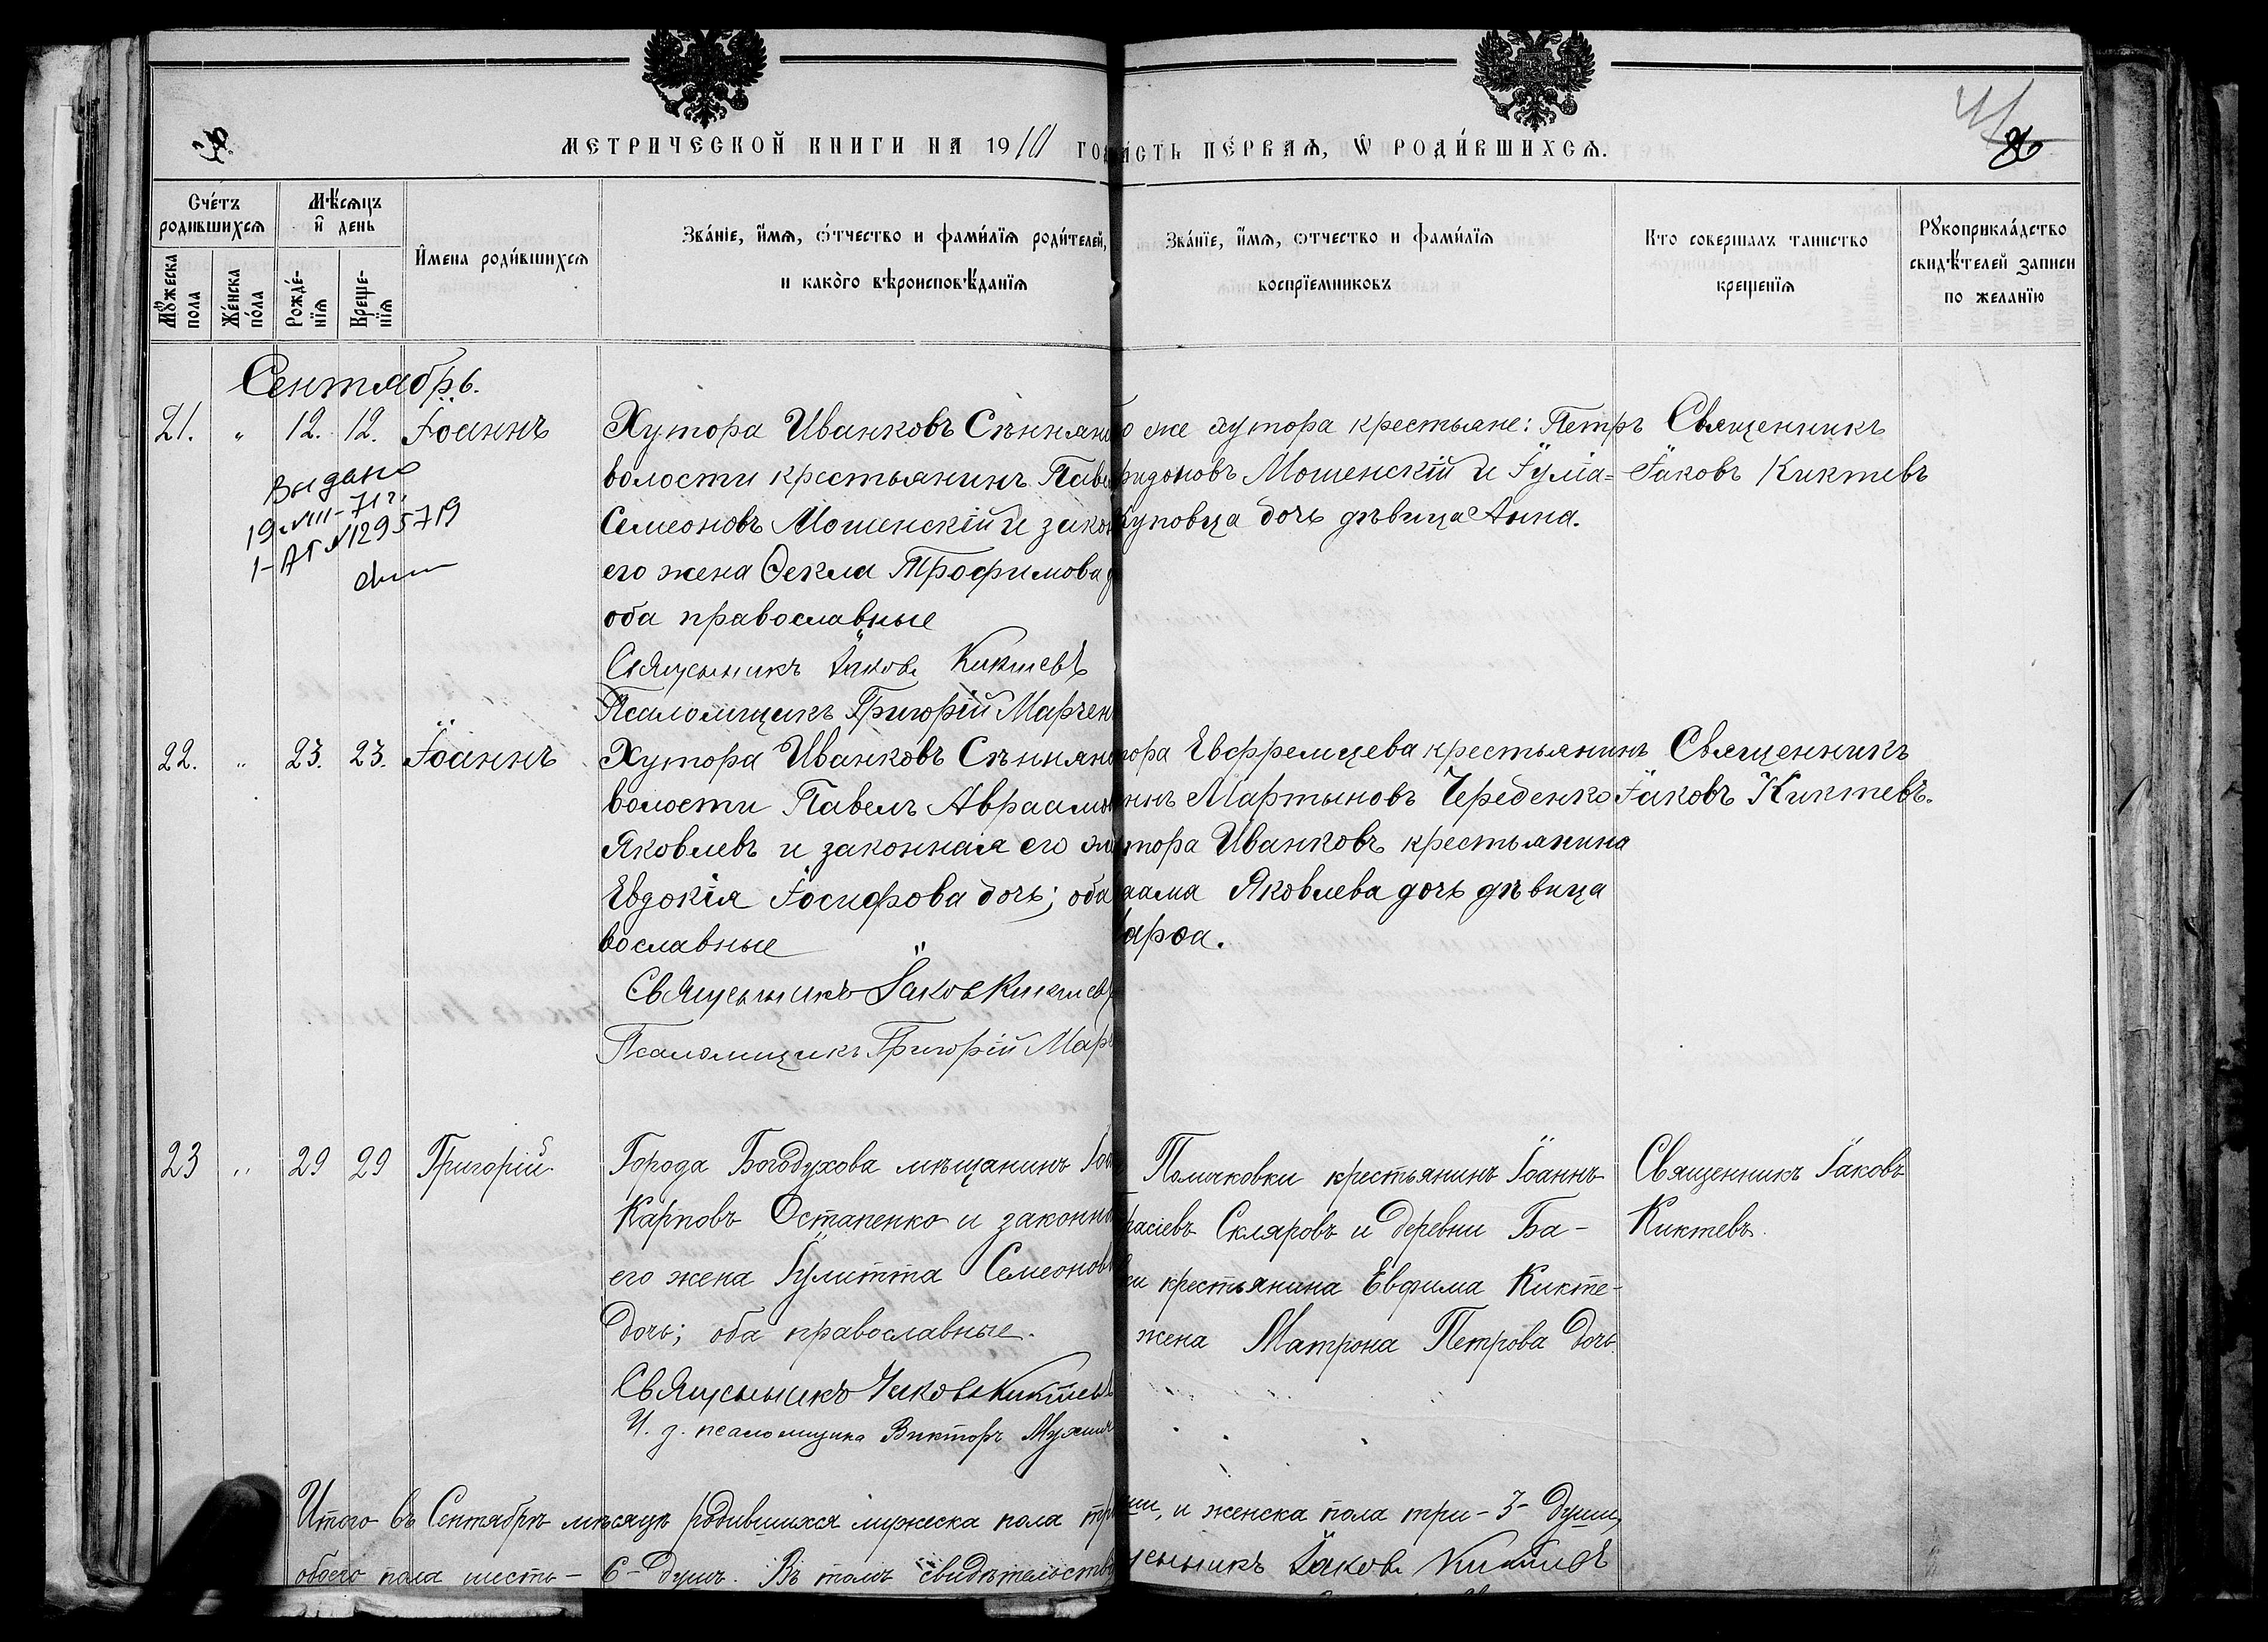 МЕТРИЧЕСКОЙ КНИГИ НА 1910 ГО
АСТЬ ПЕ́РВАѦ, Ѿ РОДИ́ВШИХСѦ.
36
Сче́тъ родившихсѧ
Мѣ́сѧцъ и҆ день
Мꙋ́жеска пола
Же́нска по́ла
Рожде́-нїѧ
Креще-нїѧ
И҆мена роди́вшихсѧ
Зва́нїе, и҆́мѧ, ѻ҆́тчество и фами́лїѧ роди́телей,
и како́го вѣроисповѣ́данїѧ
Зва́нїе, и҆́мѧ, ѻтчество и фами́лїѧ
воспрїемниковъ
Кто совершалъ таинство
крещенїѧ
Рꙋкоприкла́дство
свидѣ́телей записи
по желанїю
Сентябрь.
21. " 12. 12. Іоаннъ
Выдано
19 VIII-71 г.
I-АГ №1295719
Хутора Иванковъ Сѣнням
волости крестьянинъ Паве
Семеоновъ Мошенскій и закон
его жена Ѳекла Трофимова д
оба православные
Священникъ Іаковъ Киктевъ
Псаломщикъ Григорій Марчен
о же хутора крестьяне: Петръ
ридоновъ Мошенскій и Іулiа=
Куповца дочь дѣвица Анна.
Священникъ
Іаковъ Киктевъ
22. " 23. 23. Іоаннъ
Хутора Иванковъ Сѣннян
волости Павелъ Авраамо
Яковлевъ и законная его же
Евдокія Іосифова дочь; оба
вославные
Священникъ Іаковъ Киктевъ
Псаломщикъ Григорій Марч
тора Евфремцева крестьянинъ
ннъ Мартыновъ Череденко
тора Иванковъ крестьянина
раама Яковлева дочь дѣвица
Марѳа.
Священникъ
Іаковъ Киктевъ.
23 " 29 29 Григорій
Города Богодухова мѣщанинъ Іоа
Карповъ Остапенко и законна
его жена Іулитта Семеонов
дочь; оба православные.
Священникъ Іаковъ Киктевъ
И. д. псаломщика Викторъ Мухин
Поляковки крестьянинъ Іоаннъ
расіевъ Скляровъ и деревни Ба-
ки крестьянина Евфима Кикте-
жена Матрона Петрова дочь.
Священникъ Іаковъ
Киктевъ.
Итого въ Сентябрѣ мѣсяцѣ родившихся мужеска пола тр
ши, и женска пола три - 3 - души,
обоего пола шесть - 6 - душъ. Въ томъ свидѣтельство
щенникъ Іаковъ Киктевъ